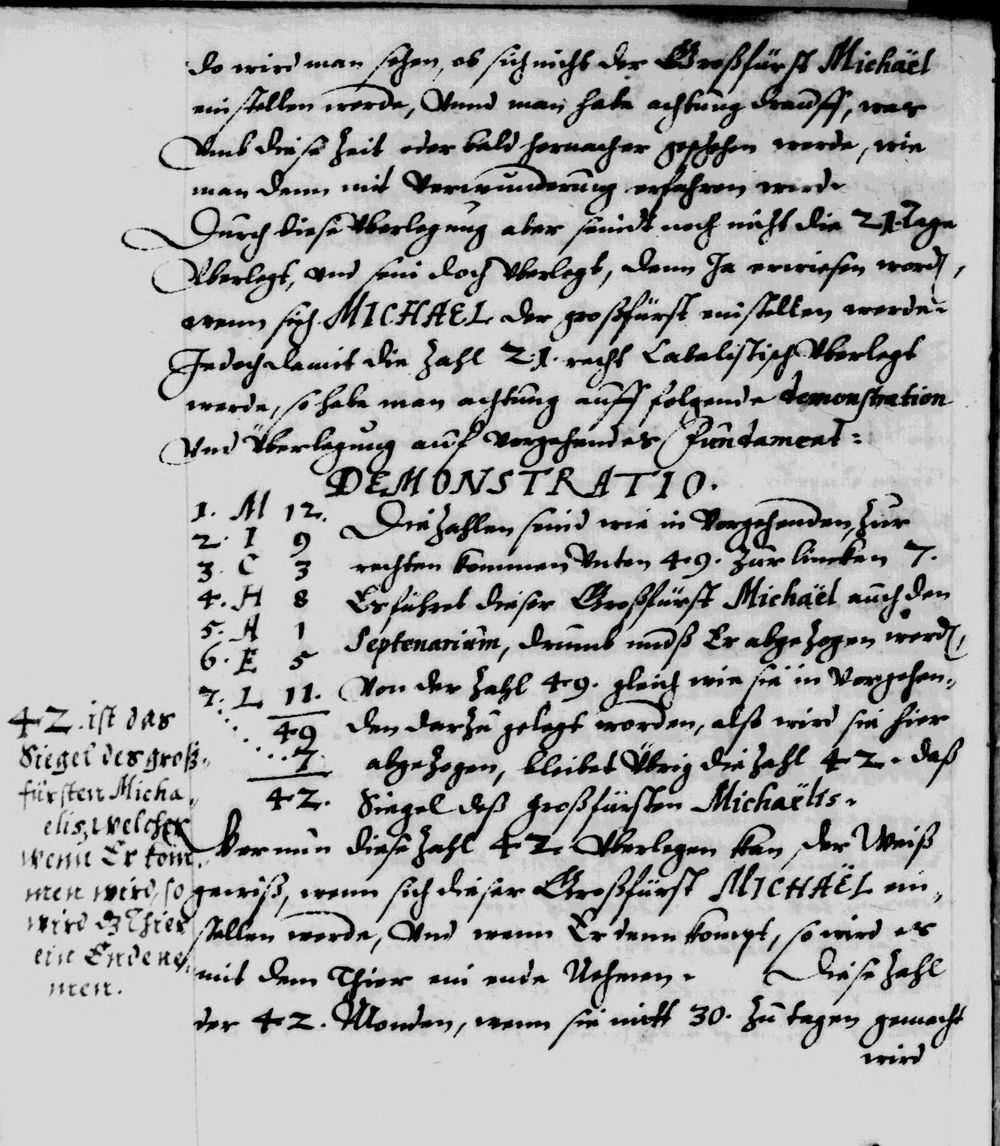 do wird man sehen, ob sich nicht der Großfürst Michaël
einstellen werde, Vnnd man habe achtung drauff, was
Vmb diese Zeit oder bald hernacher geschehen werde, wie
man denn mit Verwunderung erfahren wird.
Durch diese Vberlegung aber seindt noch nicht die 21 Tage
Vberlegt, vnd sein doch Vberlegt, denn Ja erwiesen word,
wenn sich MICHAEL der großfürst einstellen werde.
Jedoch damit die Zahl 21. recht Cabalistisch Vberlegt
werde, so habe man achtung auff folgende demonstration
Vnd Vberlegung auf vorgehendes Fundament:
DEMONSTRATIO.
1. M 12.
2. I 9
3. C 3
4. H 8
5. A 1
6. E 5
7. L 11.
49
7
42.
Die Zahlen seind wie in Vorgehenden, Zur
rechten kommen Vnten 49. Zur lincken 7.
Es führet dieser Großfürst Michaël auch den
Septenarium, drumb muß Er abgezogen werd,
Von der Zahl 49. gleich wie sie in Vorgehen,
den darzu gelegt worden, alß wird sie hier
abgezogen, bleibet Übrig die Zahl 42. daß
Siegel deß Großfürsten Michaëlis.
42. ist das
Siegel des groß,
fürsten Micha,
elis, welcher
wenn Er kom,
men wird, so
wird dz Thier
ein Ende ne,
men.
Wer nun diese Zahl 42. Vberlegen kan der Weiß
gewiß, wenn sich dieser Großfürst MICHAËL ein,
stellen werde, Vnd wenn Er denn kompt, so wird es
mit dem Thier ein ende Nehmen. Diese Zahl
der 42. Monden, wenn sie mitt 30. zu tagen gemacht
wird